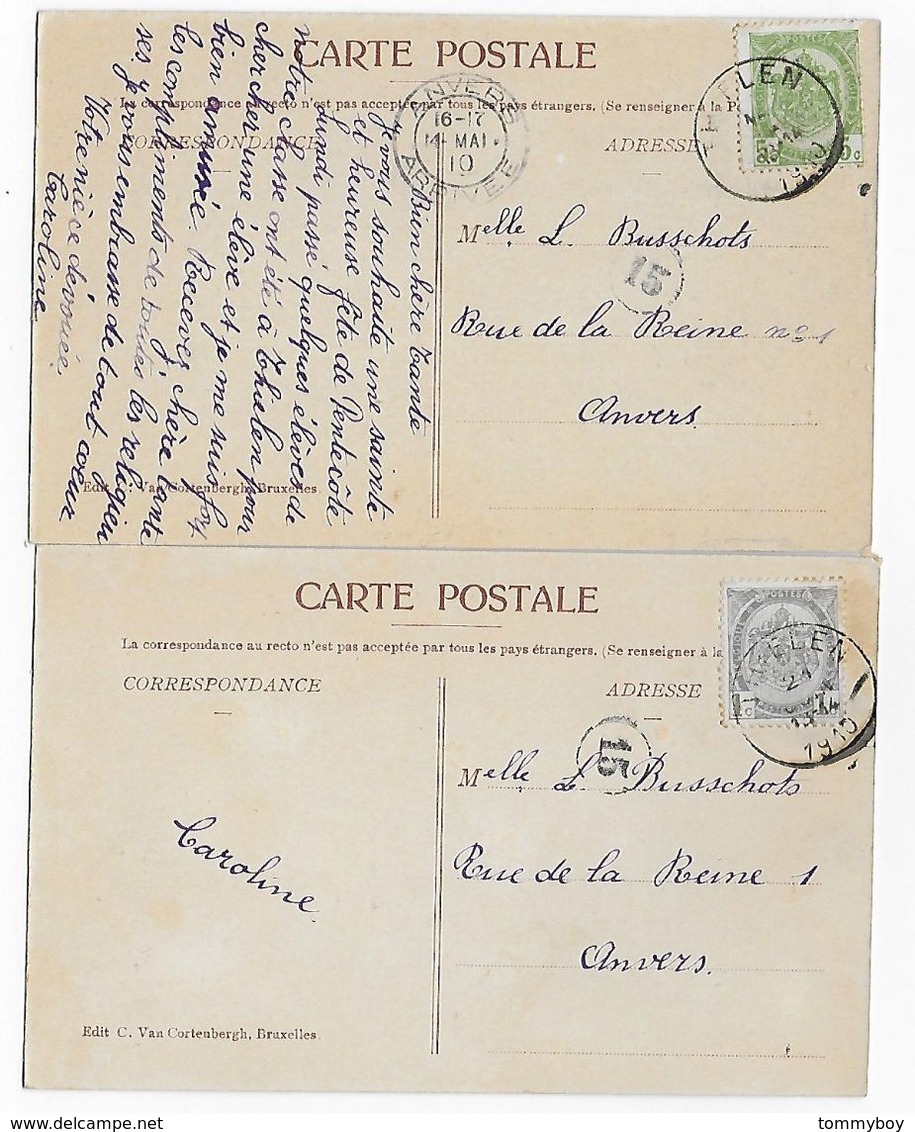 CARTE POSTALE
La correspondance au recto n'est pas acceptée par tous les pays étrangers. (Se renseigner à la Po
CORRESPONDANCE
ADRESSE
Bien chère tante
Je vous souhaite une sainte
et heureuse fête de Pentecôte
Lundi passé quelques élèves de
notre classe ont été à Thielen pour
chercher une élève et je me suis fort
bien amusée. Recevez chère tante
les compliments de toutes les religieu
ses, je vous embrasse de tout coeur
Votre nièce dévouée,
Caroline
ANVERS
16-17
14 MAI
10
ARRIVEE
ELEN
1910
5c 5c
Melle L. Busschots
15
Rue de la Reine no 1
Anvers.
Edit C. Van Cortenbergh, Bruxelles.
CARTE POSTALE
La correspondance au recto n'est pas acceptée par tous les pays étrangers. (Se renseigner à la
CORRESPONDANCE
ADRESSE
POSTES
1c
ELEN
21
1910
15
Melle L. Busschots
Caroline.
Rue de la Reine 1
Anvers.
Edit C. Van Cortenbergh, Bruxelles.
tommyboy